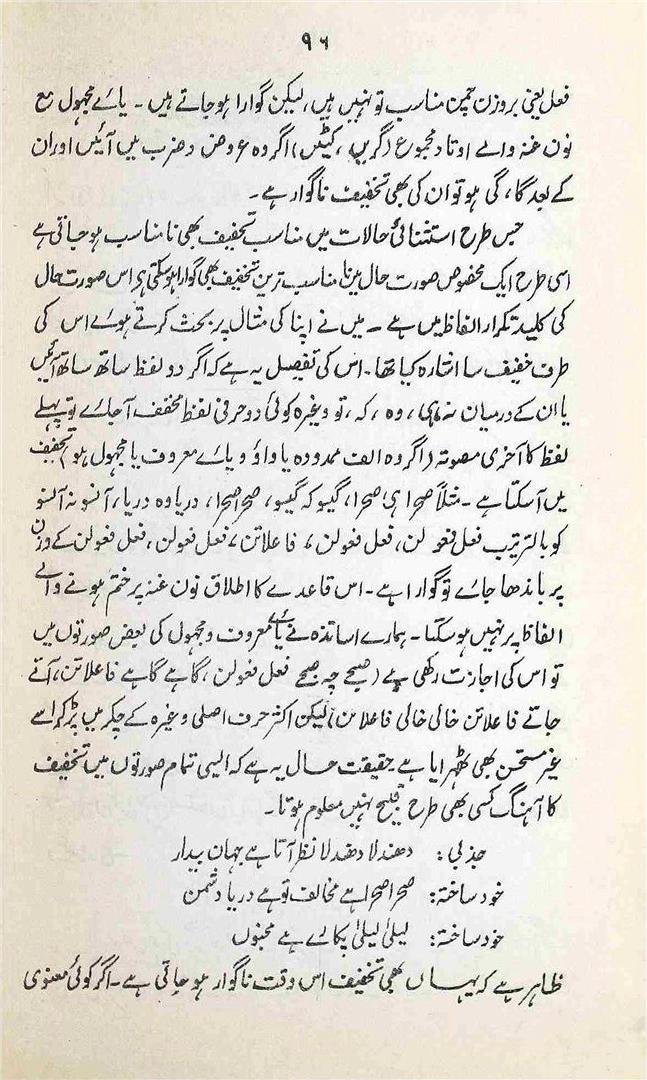 ۹۶
فعل یعنی بروزن چمن مناسب تو نہیں ہیں، لیکن گوارا ہو جاتے ہیں۔ یائے مجہول مع
نون غنہ والے اوتاد مجموع (گریں، کیٹیں) اگر وہ عروض و ضرب میں آئیں اور ان
کے بعد گا، گی ہو تو ان کی بھی تخفیف ناگوار ہے۔
جس طرح استثنائی حالات میں مناسب تخفیف بھی نامناسب ہو جاتی ہے
اسی طرح ایک مخصوص صورت حال میں نا مناسب ترین تخفیف بھی گوارا ہو سکتی ہے اس صورت حال
کی کلید تکرار الفاظ میں ہے۔ میں نے اپنا کی مثال پر بحث کرتے ہوئے اس کی
طرف خفیف سا اشارہ کیا تھا۔ اس کی تفصیل یہ ہے کہ اگر دو لفظ ساتھ ساتھ آئیں
یا ان کے درمیان نہ، ہی، وہ، کہ، تو وغیرہ کوئی دو حرفی لفظ مخفف آ جائے تو پہلے
لفظ کا آخری مصوتہ (اگر وہ الف ممدودہ یا واؤ و یائے معروف یا مجہول ہو) تخفیف
میں آ سکتا ہے۔ مثلاً صحرا ہی صحرا، گیسو کہ گیسو، صحرا صحرا، دریا وہ دریا، آنسو نہ آنسو
کو بالترتیب فعل فعولن، فعل فعولن، فاعلاتن، فعل فعولن، فعل فعولن کے وزن
پر باندھا جائے تو گوارا ہے۔ اس قاعدے کا اطلاق نون غنہ پر ختم ہونے والے
الفاظ پر نہیں ہو سکتا۔ ہمارے اساتذہ نے یائے معروف و مجہول کی بعض صورتوں میں
تو اس کی اجازت رکھی ہے (صبحے چہ صبحے فعل فعولن، گاہے گاہے فاعلاتن، آتے
جاتے فاعلاتن خالی خالی فاعلاتن) لیکن اکثر حرف اصلی وغیرہ کے چکر میں پڑ کر اسے
غیر مستحسن بھی ٹھہرایا ہے حقیقت حال یہ ہے کہ ایسی تمام صورتوں میں تخفیف
کا آہنگ کسی بھی طرح قبیح نہیں معلوم ہوتا۔
جذبی: دھندلا دھندلا نظر آتا ہے جہان بیدار
خود ساختہ: صحرا صحرا ہے مخالف تو ہے دریا دشمن
خود ساختہ: لیلیٰ لیلیٰ پکارے ہے مجنوں
ظاہر ہے کہ یہاں بھی تخفیف اس وقت ناگوار ہو جاتی ہے۔ اگر کوئی معنوی